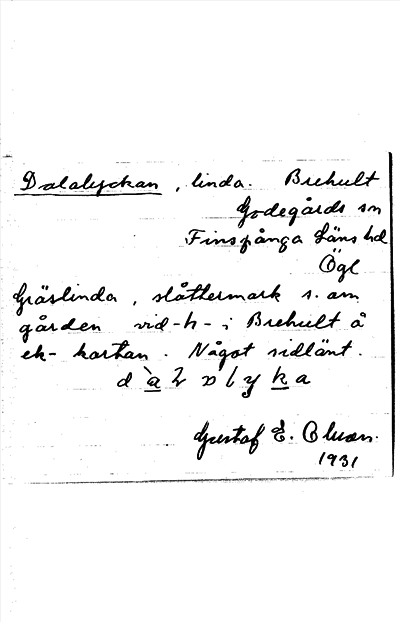 Dalalyckan, linda. Brehult
Godegårds sn
Finspånga Läns hd
Ögl
Gräslinda, slåttermark s. om
gården vid -h- i Brehult å
ek-kartan. Något sidlänt.
Gustaf E.
1931